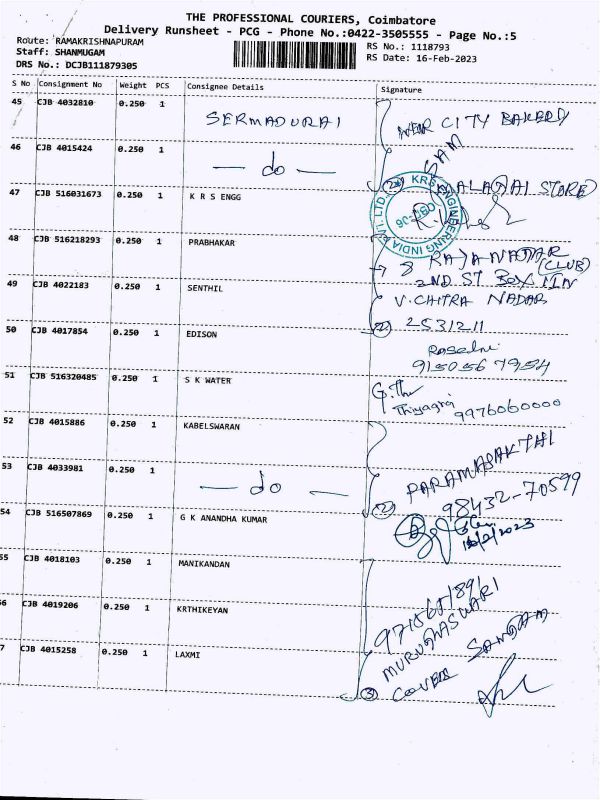 THE PROFESSIONAL COURIERS, Coimbatore
Delivery Runsheet - PCG - Phone No.:0422-3505555 - Page No.:5
Route: RAMAKRISHNAPURAM
Staff: SHANMUGAM
DRS No.: DCJB111879305
RS No.: 1118793
RS Date: 16-Feb-2023
S No Consignment No Weight PCS Consignee Details Signature
45 CJB 4032810 0.250 1 SERMADURAI
CITY BAKERY
46 CJB 4015424 0.250 1 — do —
SAM
STORE
47 CJB 516031673 0.250 1 K R S ENGG
KRS ENGINEERING INDIA PVT. LTD.
48 CJB 516218293 0.250 1 PRABHAKAR
RAJA NADAR
(CLUB)
2ND ST
49 CJB 4022183 0.250 1 SENTHIL
V. CHITRA NADAR
50 CJB 4017854 0.250 1 EDISON
(2) 2531211
51 CJB 516320485 0.250 1 S K WATER
9976060000
52 CJB 4015886 0.250 1 KABELSWARAN
PARAMASAKTHI
53 CJB 4033981 0.250 1 — do —
(2) 98432-70599
54 CJB 516507869 0.250 1 G K ANANDHA KUMAR
55 CJB 4018103 0.250 1 MANIKANDAN
56 CJB 4019206 0.250 1 KRTHIKEYAN
MURUGHASWARI
7 CJB 4015258 0.250 1 LAXMI
(3)